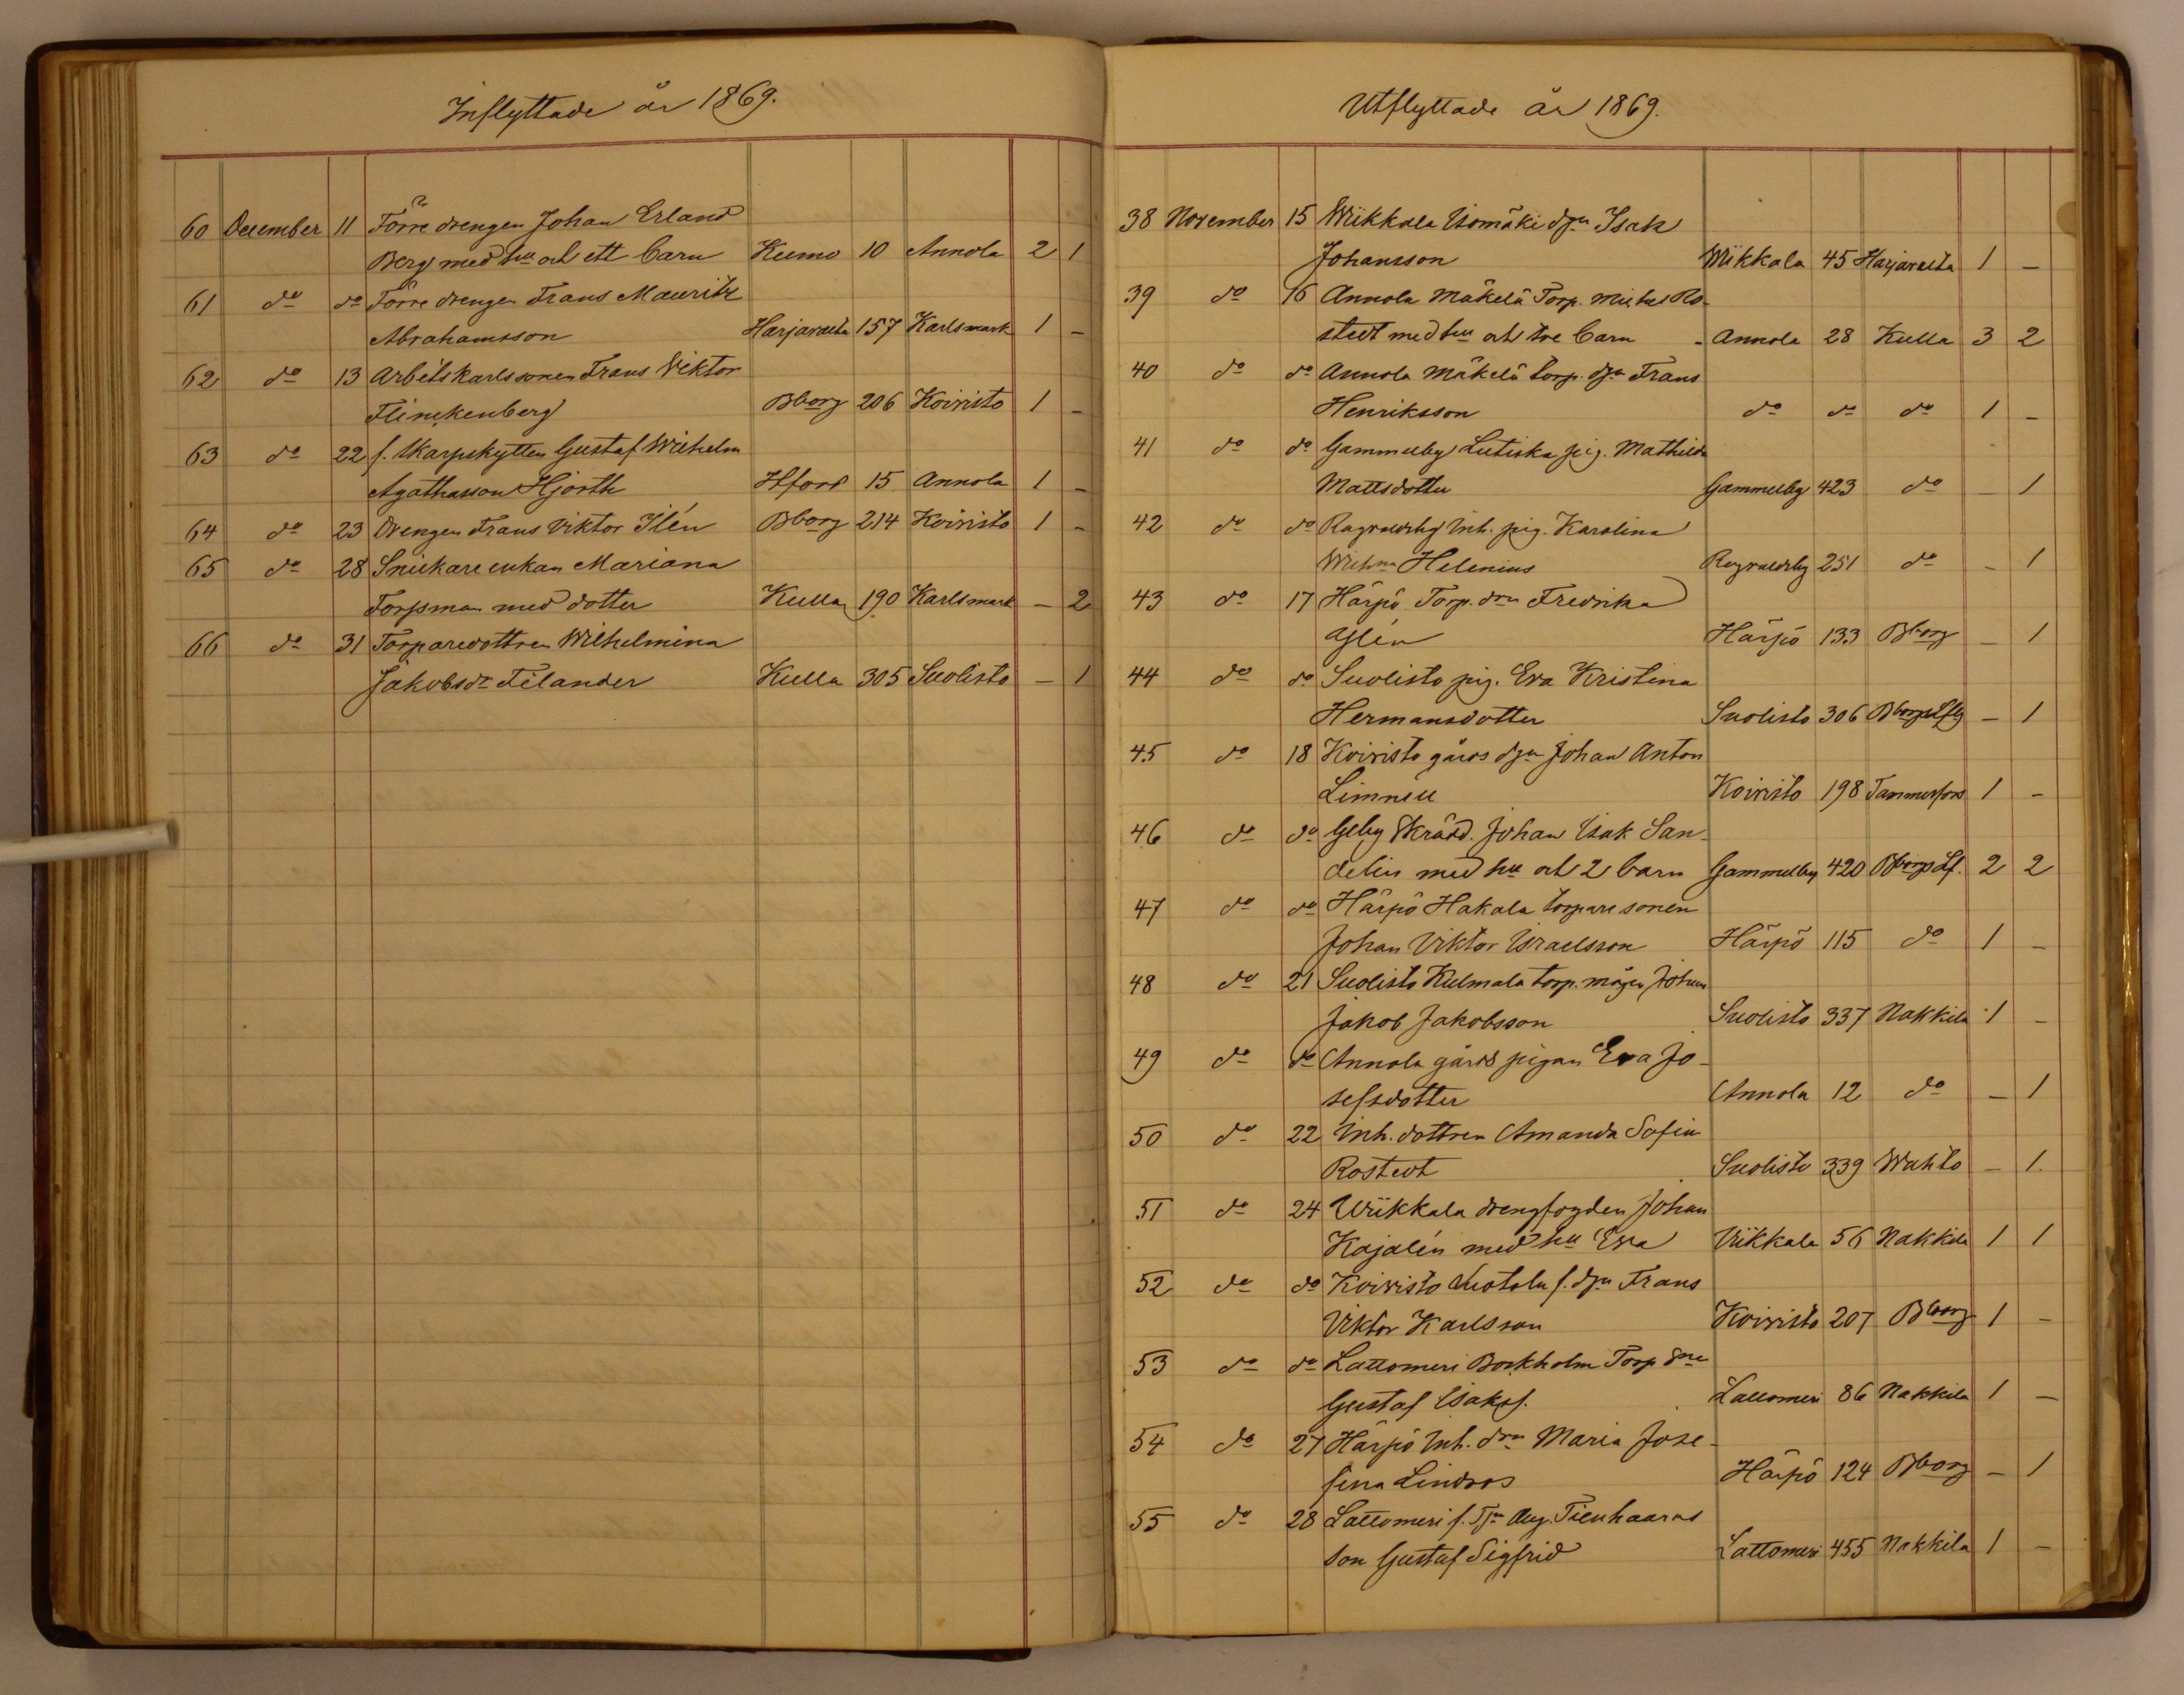 Inflyttade år 1869.
60 December 11 Förre drengen Johan Erland
Berg med hu och ett barn Kumo 10 Annola 2 1
61 do do Förre drengen Frans Mauritz
Abrahamsson Harjavalta 157 Karlsmark 1 -
62 do 13 Arbetskarlssonen Frans Viktor
Flinckenberg Bborg 206 Koivisto 1 -
63 do 22 f. Skarpskytten Gustaf Wilhelm
Agathasson Hjorth Hfors 15 Annola 1 -
64 do 23 Drengen Frans Viktor Ilén Bborg 214 Koivisto 1 -
65 do 28 Snickare enkan Mariana
Forsman med dotter Kulla 190 Karlsmark - 2
66 do 31 Torparedottren Wilhelmina
Jakobsdr Filander Kulla 305 Suolisto - 1
Utflyttade år 1869.
38 November 15 Wiikkala Isomäki dgn Isak
Johansson Wiikkala 45 Harjavalta 1 -
39 do 16 Annola Mäkelä Torp. Mickel Ro-
stedt med hu och tre barn Annola 28 Kulla 3 2
40 do do Annola Mäkelä torp. dgn Frans
Henriksson do do do 1 -
41 do do Gammelby Lutiska pig. Mathilda
Mattsdotter Gammelby 423 do - 1
42 do do Ragvaldsby Inh. pig. Karolina
Wilhna Helenius Ragvaldsby 251 do - 1
43 do 17 Härpö Torp. drn Fredrika
Härpö 133 Bborg - 1
44 do do Suolisto pig. Eva Kristina
Hermansdotter Suolisto 306 - 1
45 do 18 Koivisto gårds dgn Johan Anton
Limnell Koivisto 198 Tammerfors 1 -
46 do do Gelby Skrädd. Johan Isak San-
delin med hu och 2 barn Gammelby 420 Bborgs Lf. 2 2
47 do do Härpö Hakala torpare sonen
Johan Viktor Israelsson Härpö 115 do 1 -
48 do 21 Suolisto Kulmala torp. mågen Johan
Jakob Jakobsson Suolisto 337 Nakkila 1 -
49 do do Annola gårds pigan Eva Jo-
sefsdotter Annola 12 do - 1
50 do 22 Inh. dottren Amanda Sofia
Rostedt Suolisto 339 Wahto - 1.
51 do 24 Wiikkala drengfogden Johan
Kajalén med hu Eva Viikkala 56 Nakkila 1 1
52 do do Koivisto f. dgn Frans
Viktor Karlsson Koivisto 207 Bborg 1 -
53 do do Lattomeri Bockholm Torp sne
Gustaf Isakss. Lattomeri 86 Nakkila 1 -
54 do 27 Härpö Inh. drn Maria Jose-
fina Lindros Härpö 124 Bborg - 1
55 do 28 Lattomeri f. Aug. Tienhaaras
son Gustaf Sigfrid Lattomeri 455 Nakkila 1 -